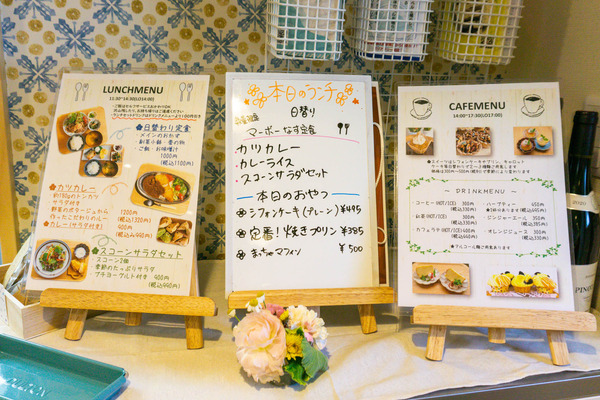 LUNCHMENU
11:30~14:30(LO14:00)
日替わり定食
メインのおかず
・ご飯・お味噌汁
1000円
(税込1100円)
カツカレー
約180gのトンカツ
サラダ付き
野菜のポタージュから
作ったこだわりのルー
1200円
(税込1320円)
カレー(サラダ付き)
400円
(税込440円)
スコーンサラダセット
スコーン2個
季節のたっぷりサラダ
プチヨーグルト付き 900円
(税込990円)
本日のランチ
日替り
マーボーなす定食
カツカレー
・カレーライス
スコーンサラダセット
本日のおやつ
シフォンケーキ(プレーン) ¥495
定番!焼きプリン ¥385
¥500
CAFEMENU
14:00~17:30(LO17:00)
DRINKMENU
コーヒー(HOT/ICE) 300円
(税込330円)
紅茶(HOT/ICE) 300円
(税込330円)
カフェラテ(HOT/ICE) 400円
(税込440円)
ハーブティー 450円
(税込495円)
ジンジャーエール 350円
(税込385円)
オレンジジュース 300円
(税込330円)